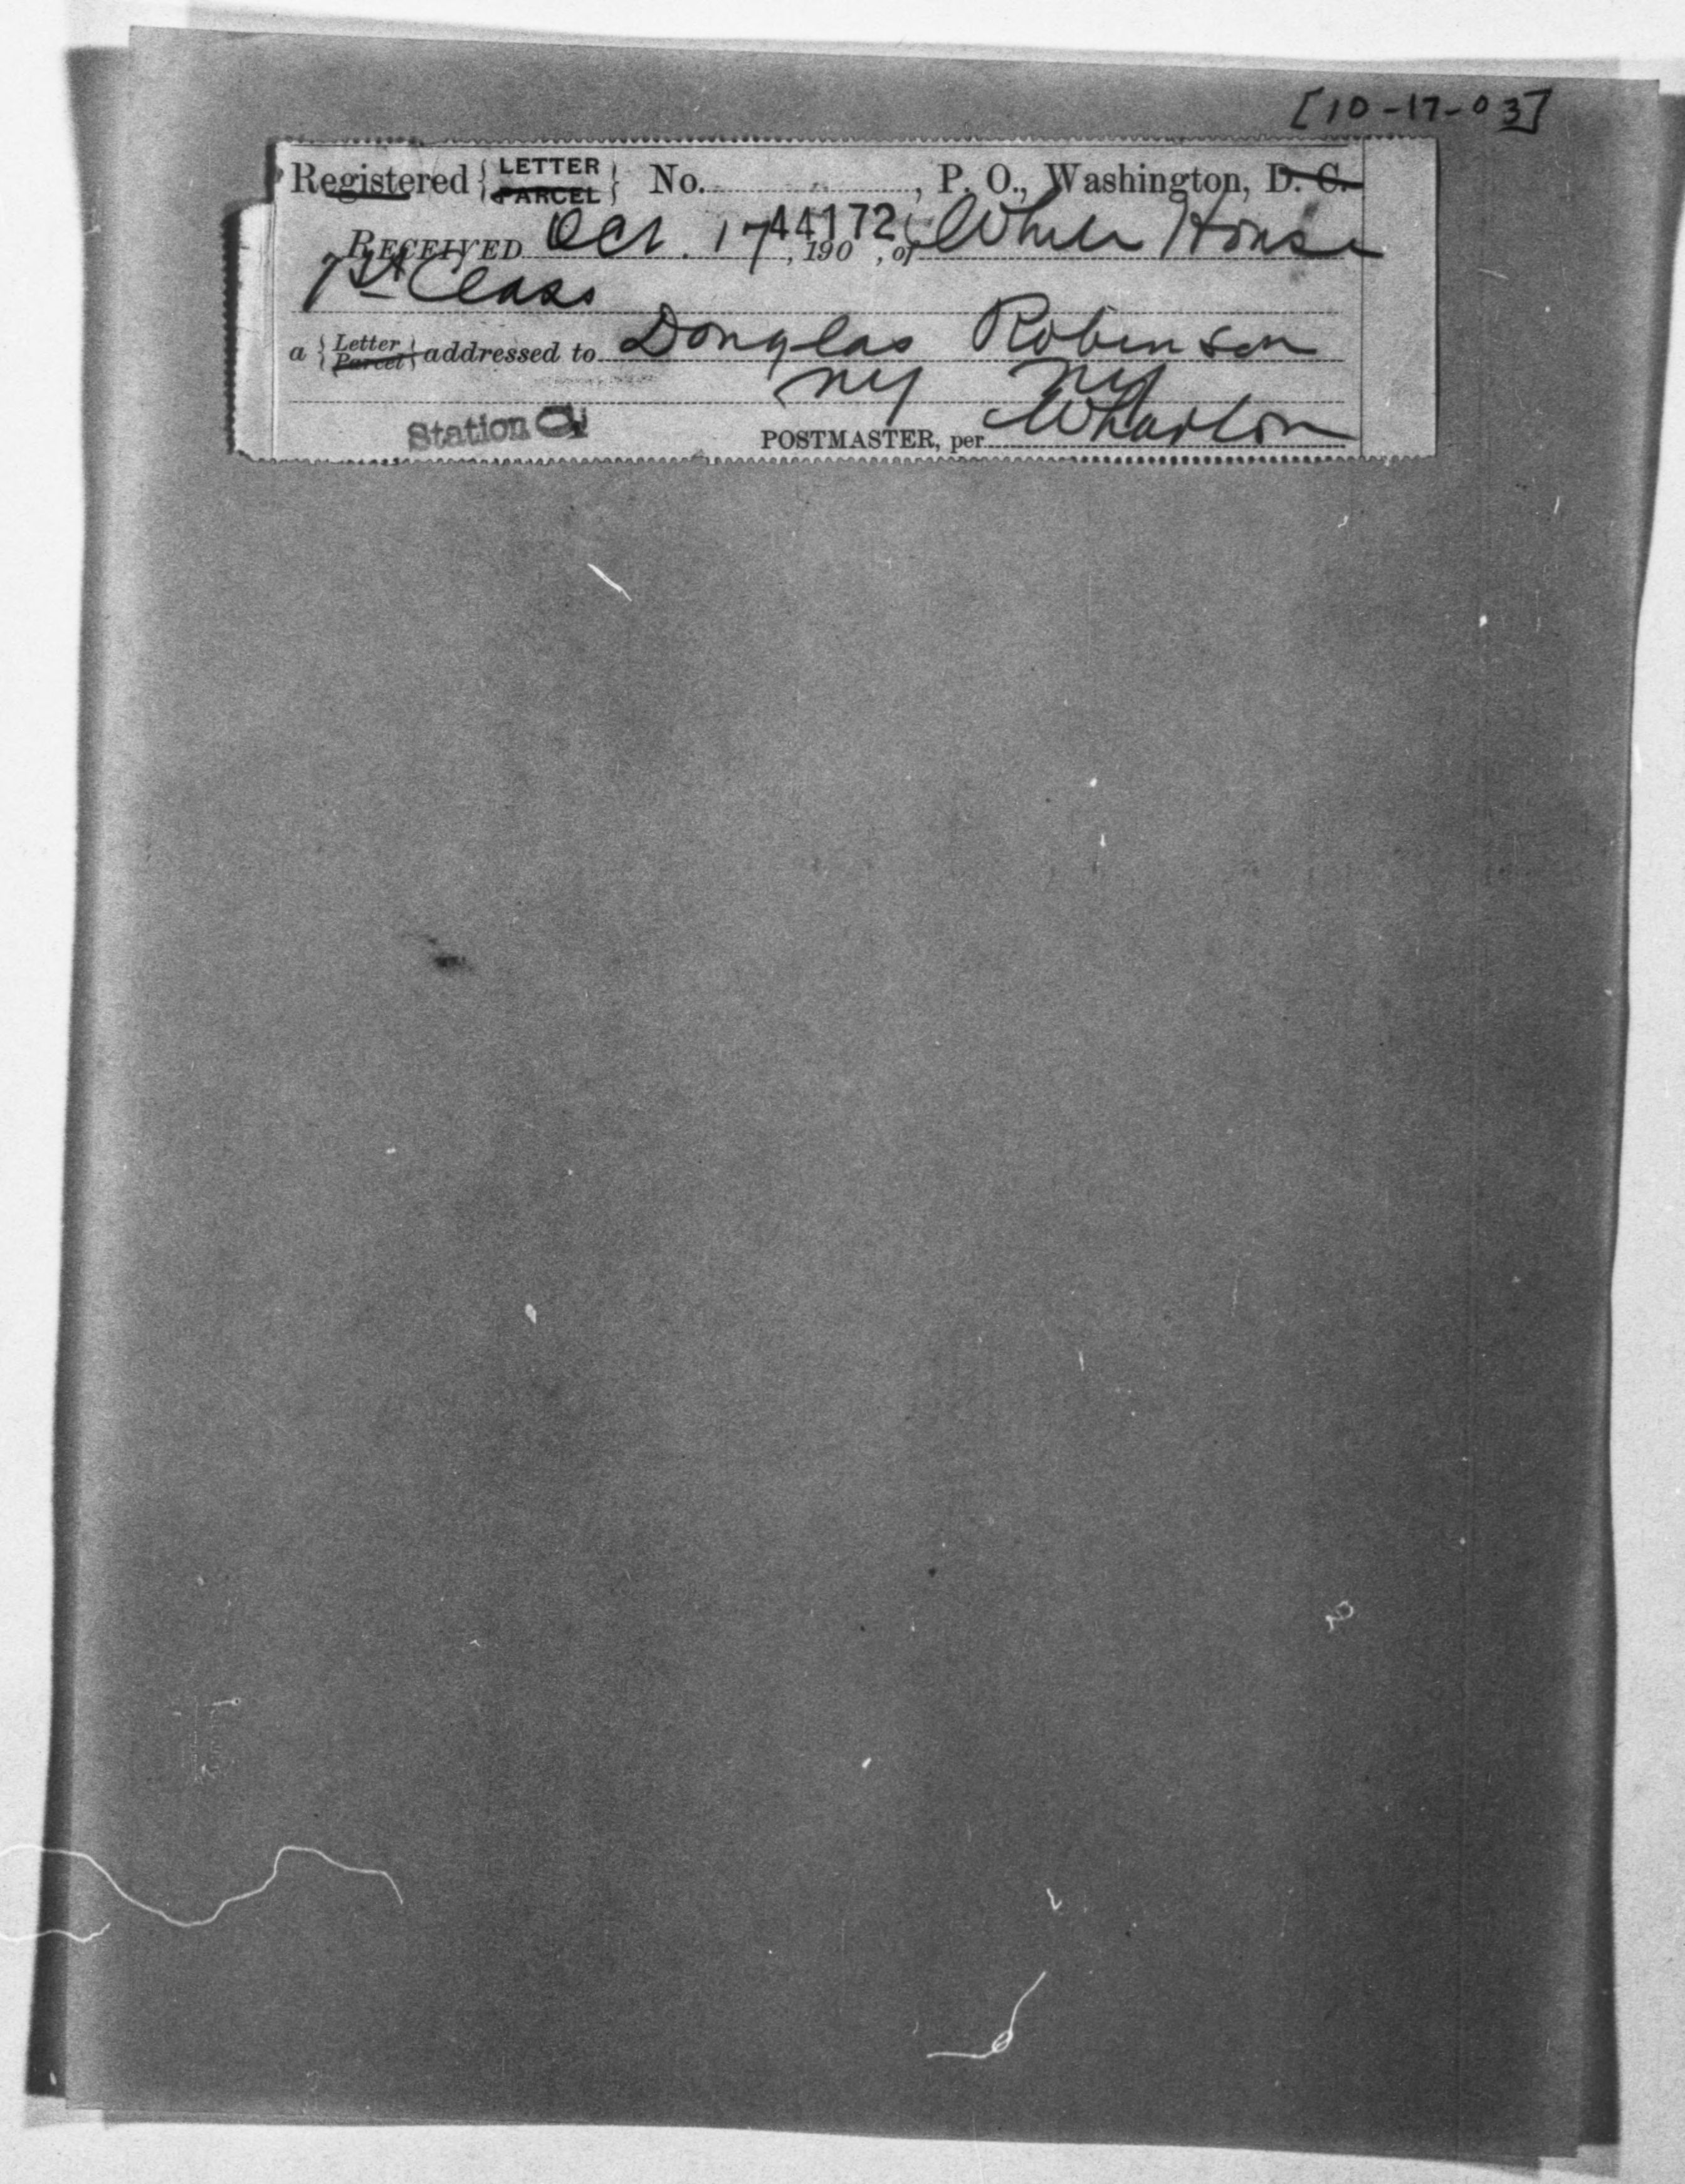 [10-17-03]
Registered { LETTER PARCEL } No. , P. O., Washington, D. C.
44172
RECEIVED Oct. 17, 190 , of White House
1st Class
a { Letter Parcel } addressed to Douglas Robinson
NY NY
Station
POSTMASTER, per Wharton